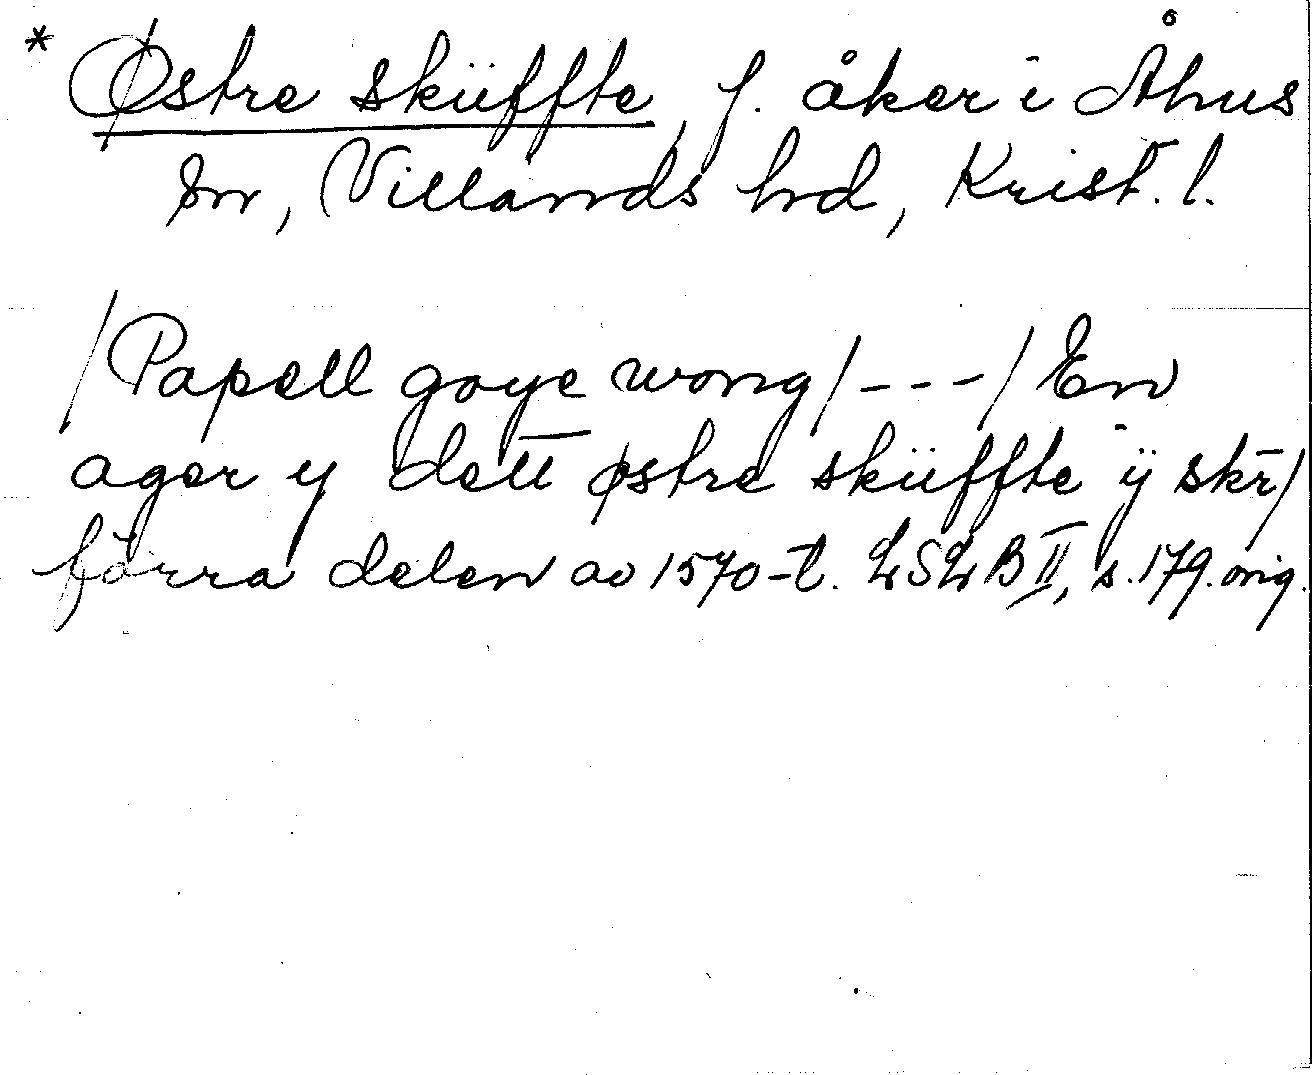 * Østre sküffte, f. åker i Åhus
sn, Villands hd, Krist. l.
/Papell goye wong/---/ En
ager y dett østre skuffte ÿ skr/
förra delen av 1570-t. LSLB II, s. 179. orig.